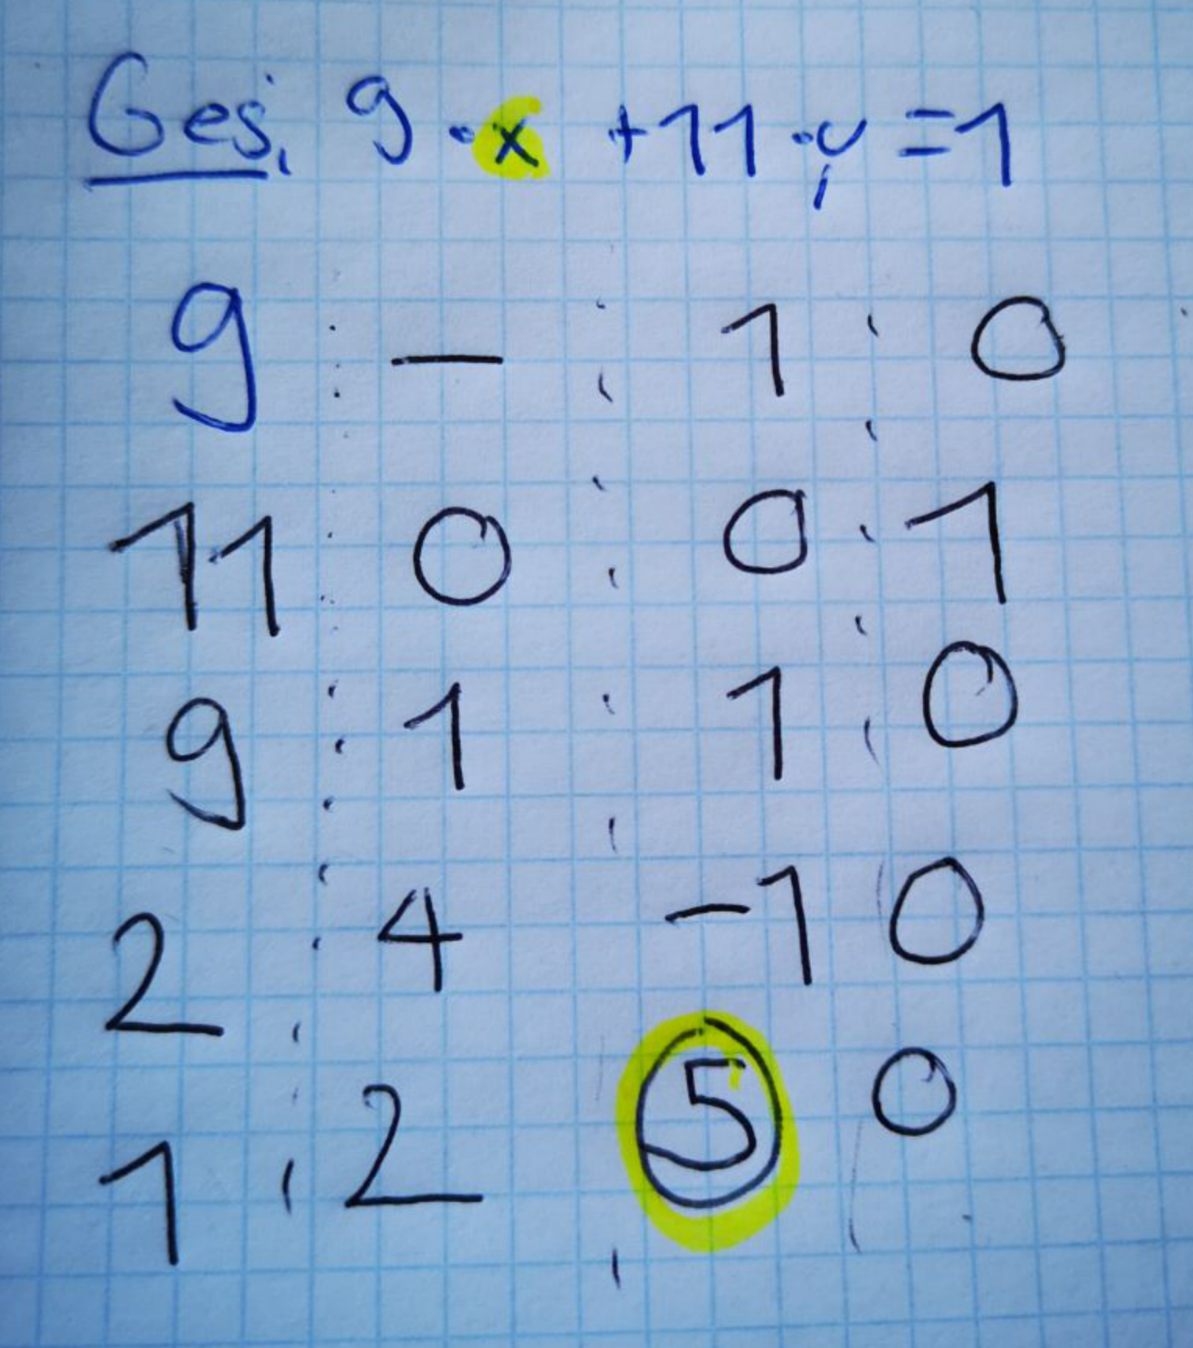 Ges. 9 · x + 11 · y = 1
9 — 1 0
11 0 0 1
9 1 1 0
2 4 -1 0
1 2 5 0